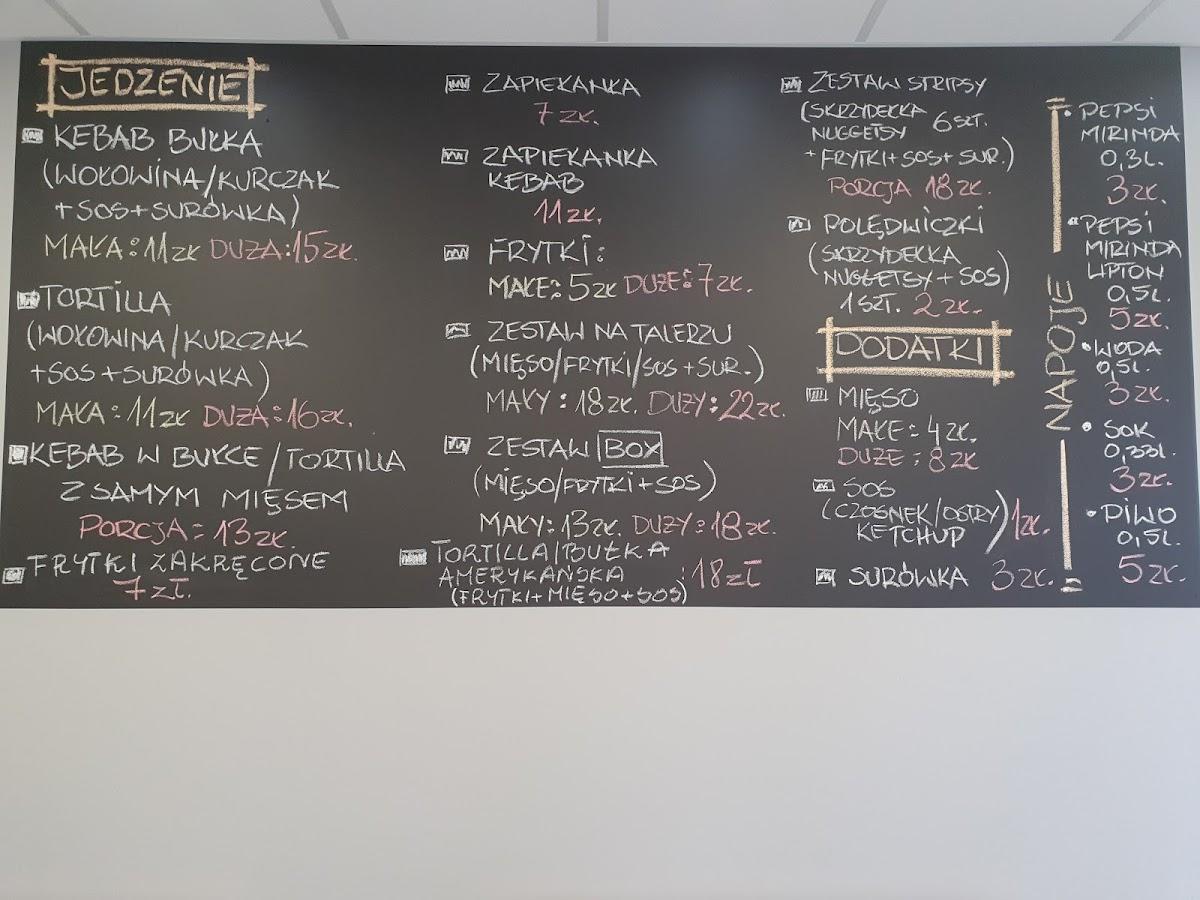 JEDZENIE
KEBAB BUŁKA
(WOŁOWINA/KURCZAK
+SOS+SURÓWKA)
MAŁA: 11 ZŁ DUŻA: 15 ZŁ.
TORTILLA
(WOŁOWINA/KURCZAK
+SOS+SURÓWKA)
MAŁA: 11 ZŁ DUŻA: 16 ZŁ.
KEBAB W BUŁCE/TORTILLA
Z SAMYM MIĘSEM
PORCJA: 13 ZŁ.
FRYTKI ZAKRĘCONE
7 ZŁ.
ZAPIEKANKA
7 ZŁ.
ZAPIEKANKA
KEBAB
11 ZŁ.
FRYTKI:
MAŁE: 5 ZŁ DUŻE: 7 ZŁ.
ZESTAW NA TALERZU
(MIĘSO/FRYTKI/SOS+SUR.)
MAŁY: 18 ZŁ. DUŻY: 22 ZŁ.
ZESTAW BOX
(MIĘSO/FRYTKI+SOS)
MAŁY: 13 ZŁ. DUŻY: 18 ZŁ.
TORTILLA/BUŁKA
AMERYKAŃSKA :18 ZŁ
(FRYTKI+MIĘSO+SOS)
ZESTAW STRIPSY
(SKRZYDEŁKA
NUGGETSY 6 SZT.
+FRYTKI+SOS+SUR.)
PORCJA 18 ZŁ.
POLĘDWICZKI
(SKRZYDEŁKA
NUGGETSY+SOS)
1 SZT. 2 ZŁ.
DODATKI
MIĘSO
MAŁE: 4 ZŁ.
DUŻE: 8 ZŁ
SOS
(CZOSNEK/OSTRY
KETCHUP) 1 ZŁ.
SURÓWKA 3 ZŁ.
NAPOJE
PEPSI
MIRINDA
0,3L.
3 ZŁ.
PEPSI
MIRINDA
LIPTON
0,5L.
5 ZŁ.
WODA
0,5L.
3 ZŁ.
SOK
0,33L.
3 ZŁ.
PIWO
0,5L.
5 ZŁ.